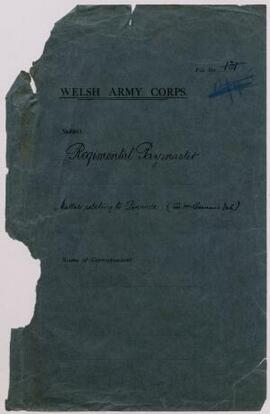 File No. 151
WELSH ARMY CORPS.
Subject
Regimental Paymaster
Matters relating to Finance. (
Name of Correspondent